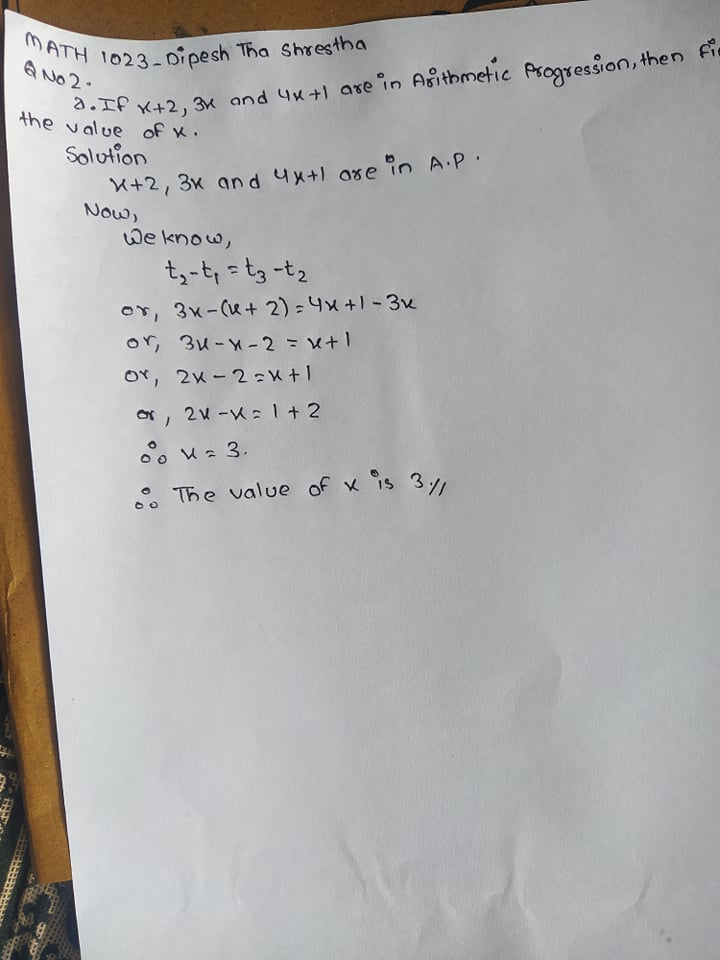 MATH 1023-Dipesh Tha Shrestha
Q No 2.
a. If x+2, 3x and 4x+1 are in Arithmetic Progression, then Fi
the value of x.
Solution
x+2, 3x and 4x+1 are in A.P.
Now,
We know,
t₂-t₁ = t₃-t₂
or, 3x-(x+2)=4x+1-3x
or, 3x-x-2 = x+1
or, 2x-2=x+1
or, 2x-x=1+2
∴ x=3.
∴ The value of x is 3//